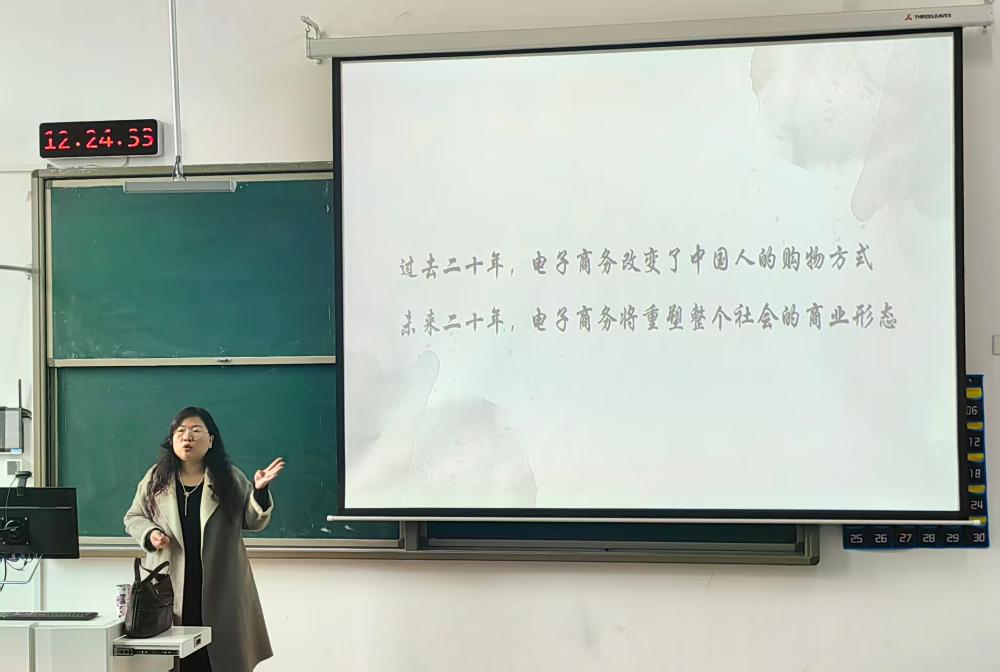 THREELEAVES
12.24.33
过去二十年，电子商务改变了中国人的购物方式
未来二十年，电子商务将重塑整个社会的商业形态
06
12
18
24
25 26 27 28 29 30